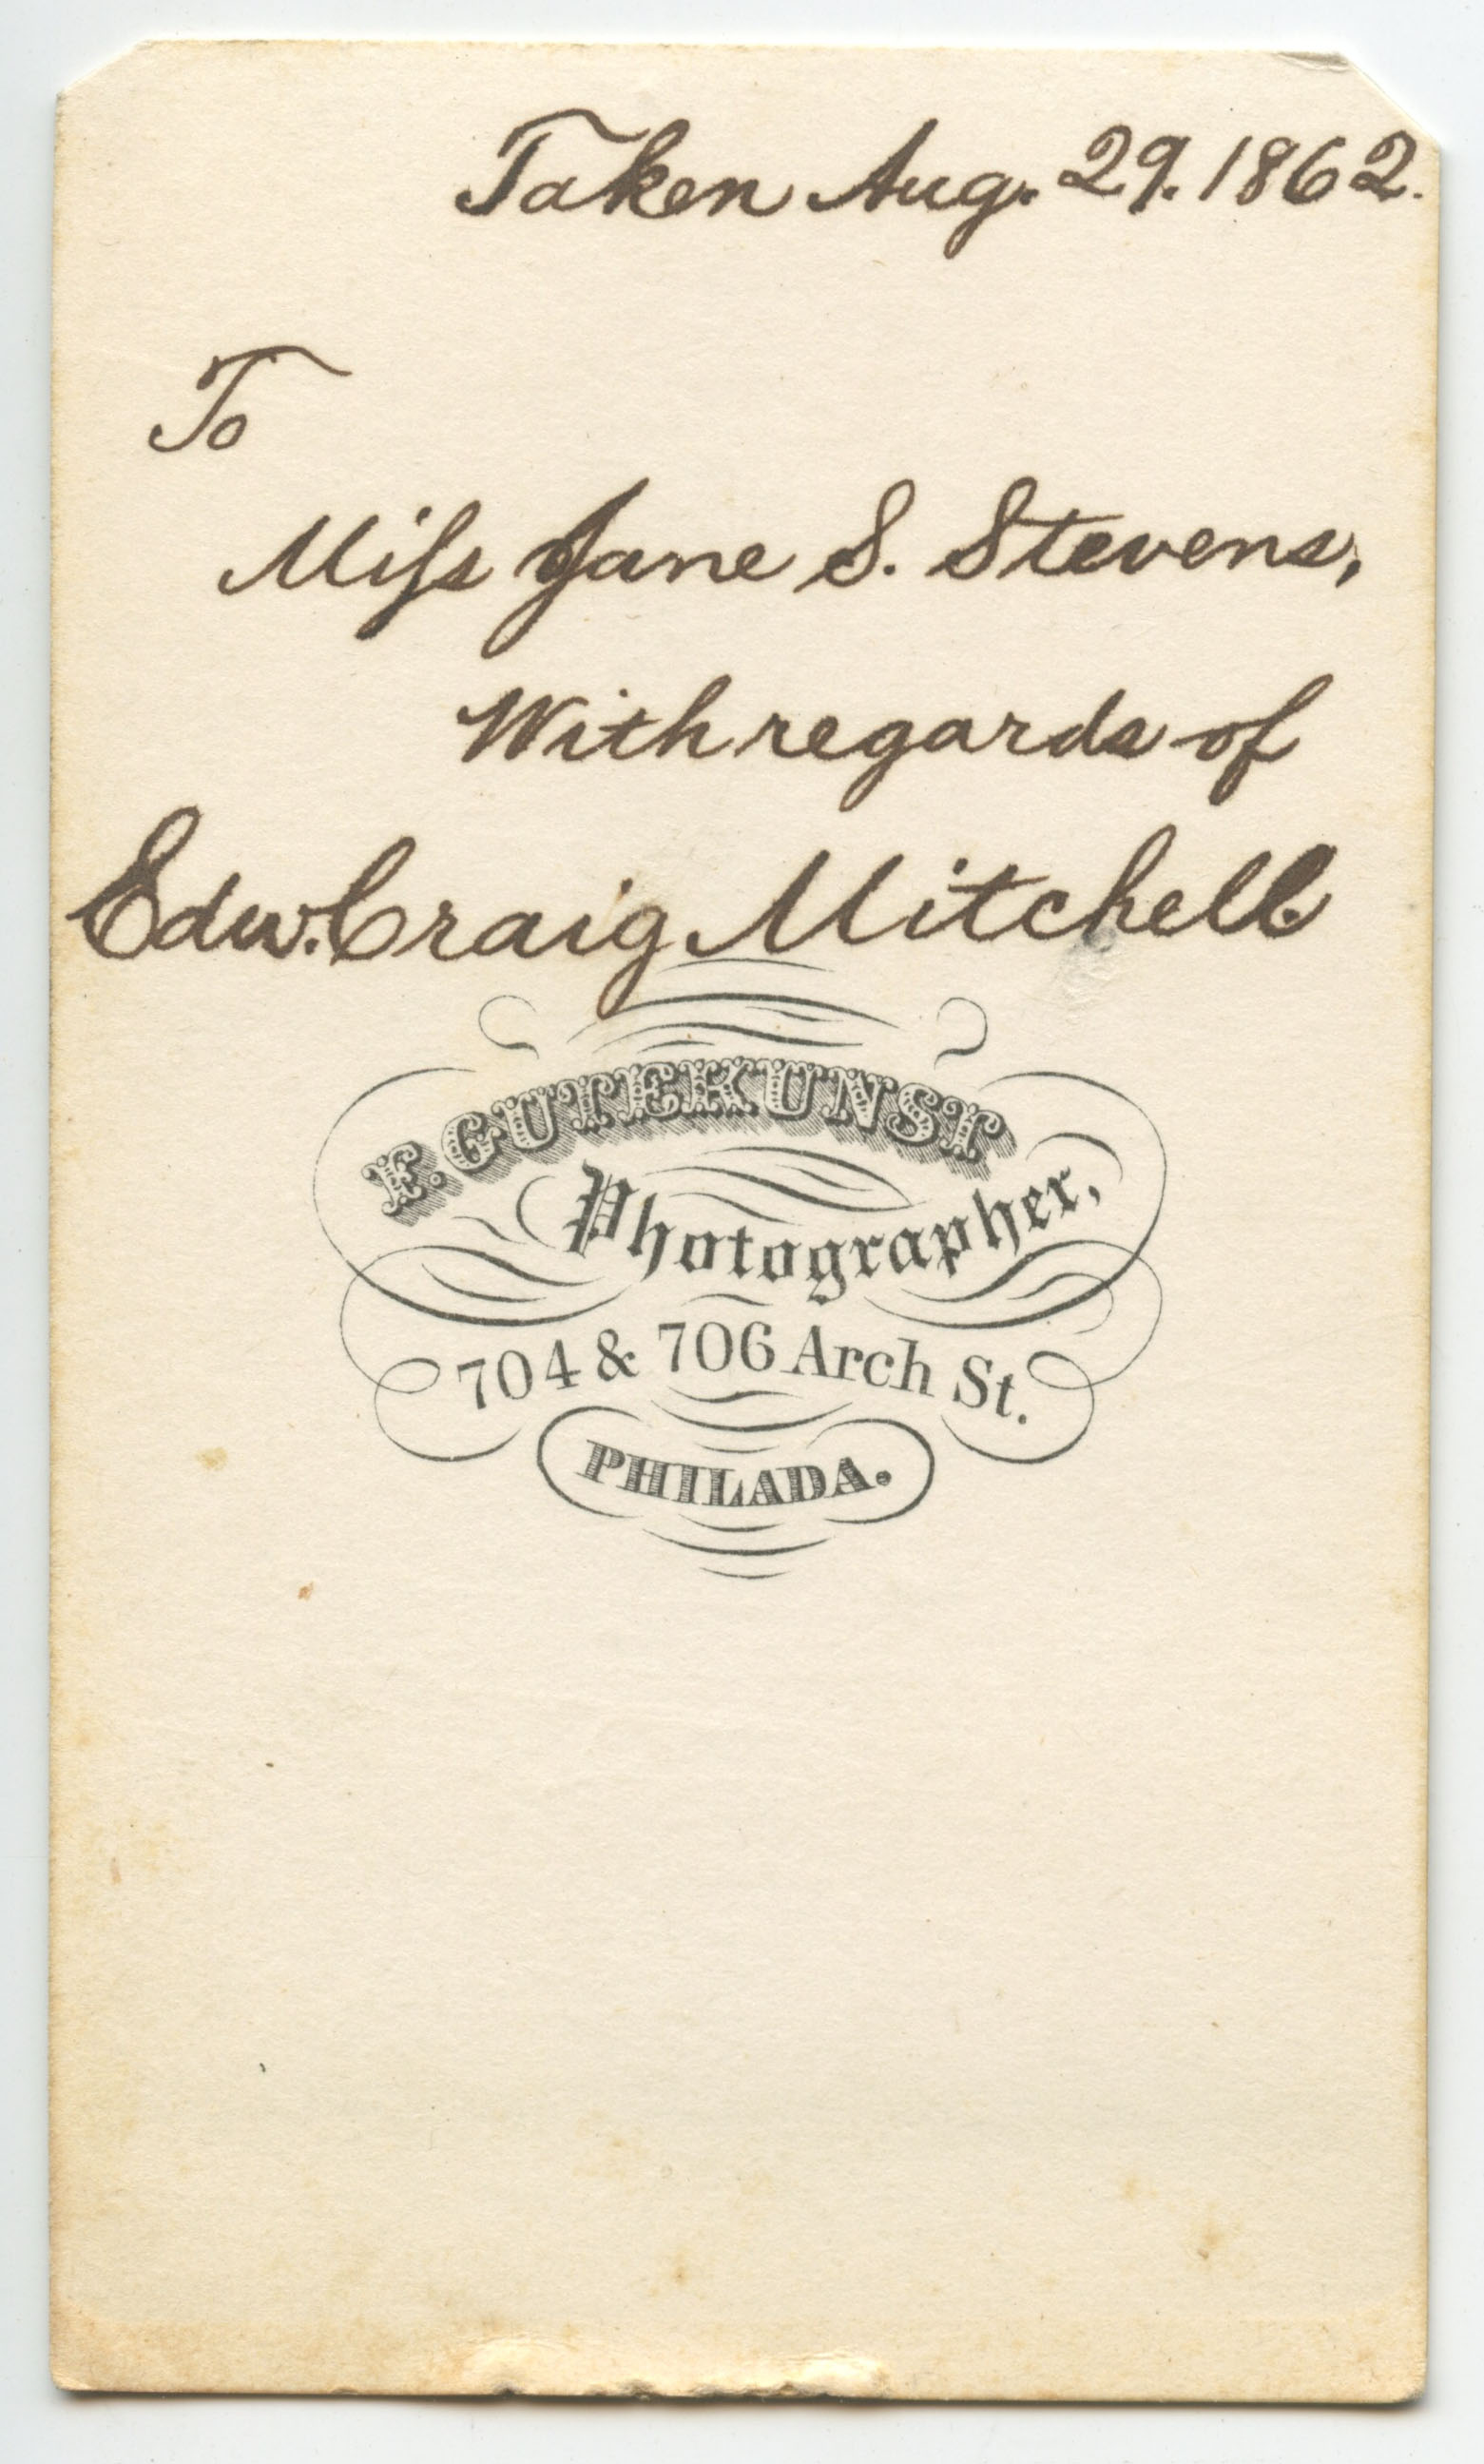 Taken Aug. 29. 1862.
To
Miſs Jane S. Stevens,
With regards of
Edw. Craig Mitchell.
F. GUTEKUNST
Photographer,
704 & 706 Arch St.
PHILADA.